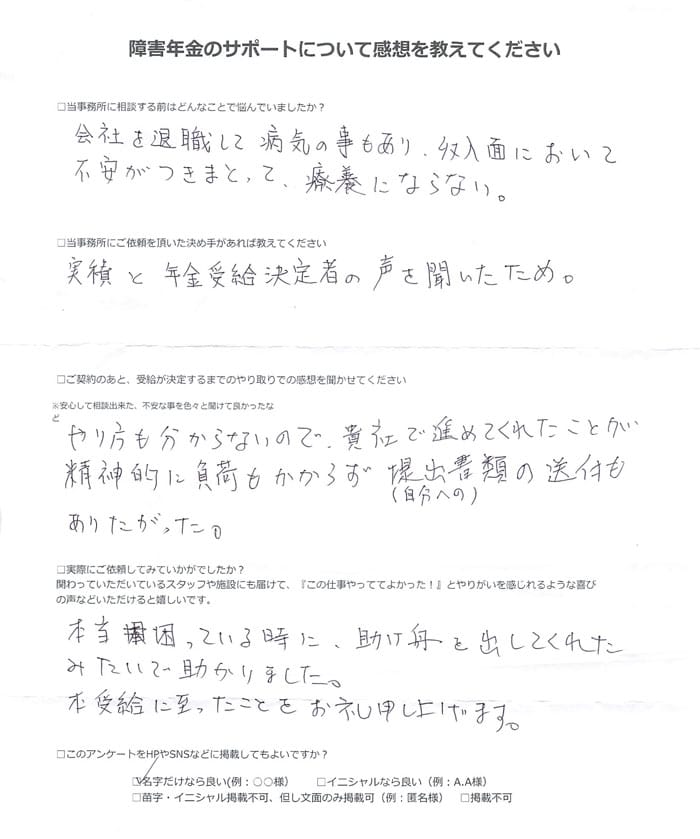 障害年金のサポートについて感想を教えてください
□当事務所に相談する前はどんなことで悩んでいましたか？
会社を退職して病気の事もあり、収入面において
不安がつきまとって、療養にならない。
□当事務所にご依頼を頂いた決め手があれば教えてください
実積と年金受給決定者の声を聞いたため。
□ご契約のあと、受給が決定するまでのやり取りでの感想を聞かせてください
※安心して相談出来た、不安な事を色々と聞けて良かったな
ど
やり方も分からないので、貴社で進めてくれたことが
精神的に負荷もかからず 提出書類の送付も
(自分への)
ありたがった。
□実際にご依頼してみていかがでしたか？
関わっていただいているスタッフや施設にも届けて、『この仕事やっててよかった！』とやりがいを感じれるような喜び
の声などいただけると嬉しいです。
本当困っている時に、助け舟を出してくれた
みたいで助かりました。
本受給に至ったことをお礼申し上げます。
□このアンケートをHPやSNSなどに掲載してもよいですか？
☑名字だけなら良い(例：○○様) □イニシャルなら良い（例：A.A様）
□苗字・イニシャル掲載不可、但し文面のみ掲載可（例：匿名様） □掲載不可